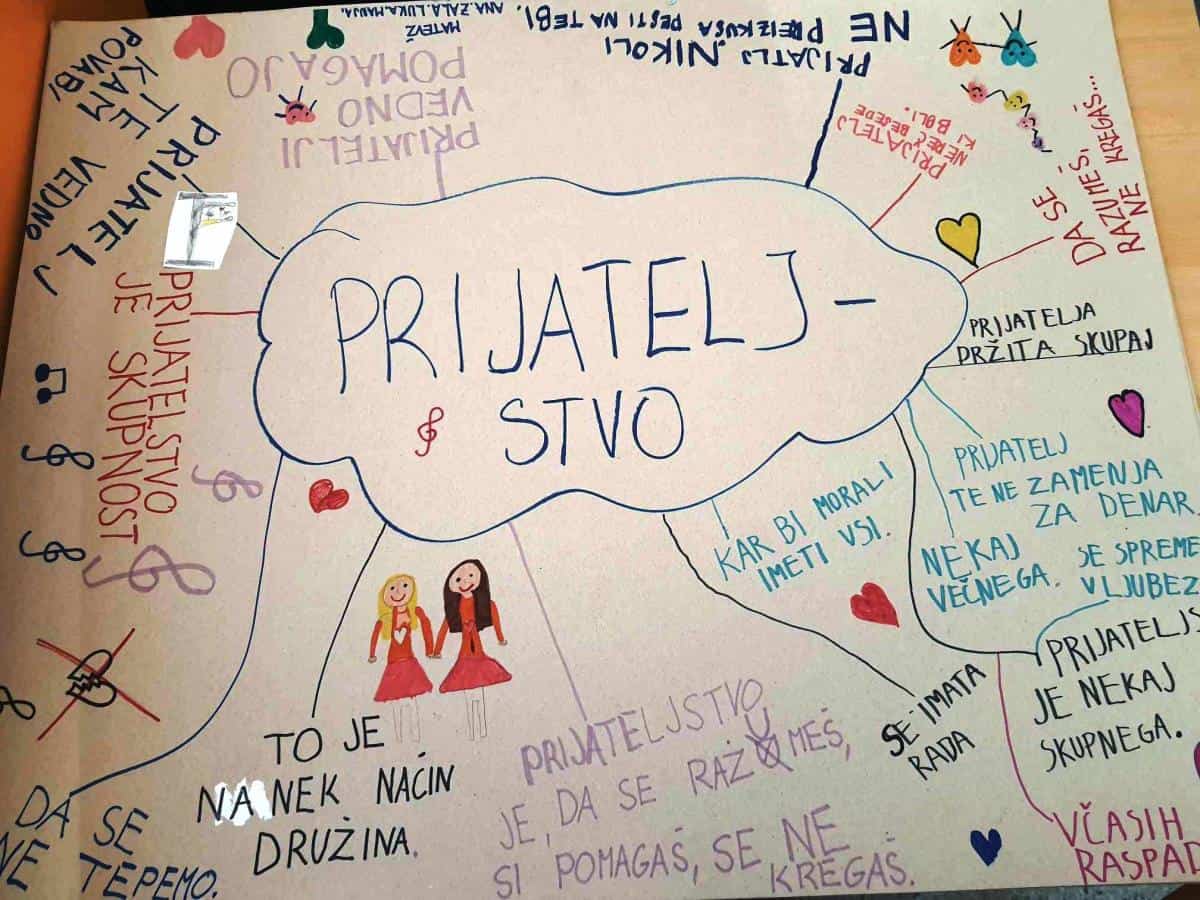 PRIJATELJ-
STVO
MATEVŽ
ANA. ZALA. LUKA. MANJA.
PRIJATELJI
VEDNO
POMAGAJO
PRIJATLJ NIKOLI
NE PREIZKUŠA PESTI NA TEBI.
PRIJATELJ
NE REČ BESEDE
KI BOLI.
DA SE
RAZUMEŠ,
NE KREGAŠ...
PRIJATELJA
DRŽITA SKUPAJ
PRIJATELJ
TE NE ZAMENJA
ZA DENAR.
NEKAJ
VEČNEGA.
SE SPREME
V LJUBEZ
PRIJATELJS
JE NEKAJ
SKUPNEGA.
VČASIH
RASPAD
KAR BI MORALI
IMETI VSI.
SE IMATA
RADA
PRIJATELJSTVO
JE, DA SE RAZUMEŠ,
SI POMAGAŠ, SE NE
KREGAŠ.
TO JE
NA NEK NAČIN
DRUŽINA.
DA SE
NE TEPEMO.
PRIJATELSTVO
JE SKUPNOST
PRIJATELJ
TE VEDNO
KAM
POVABI